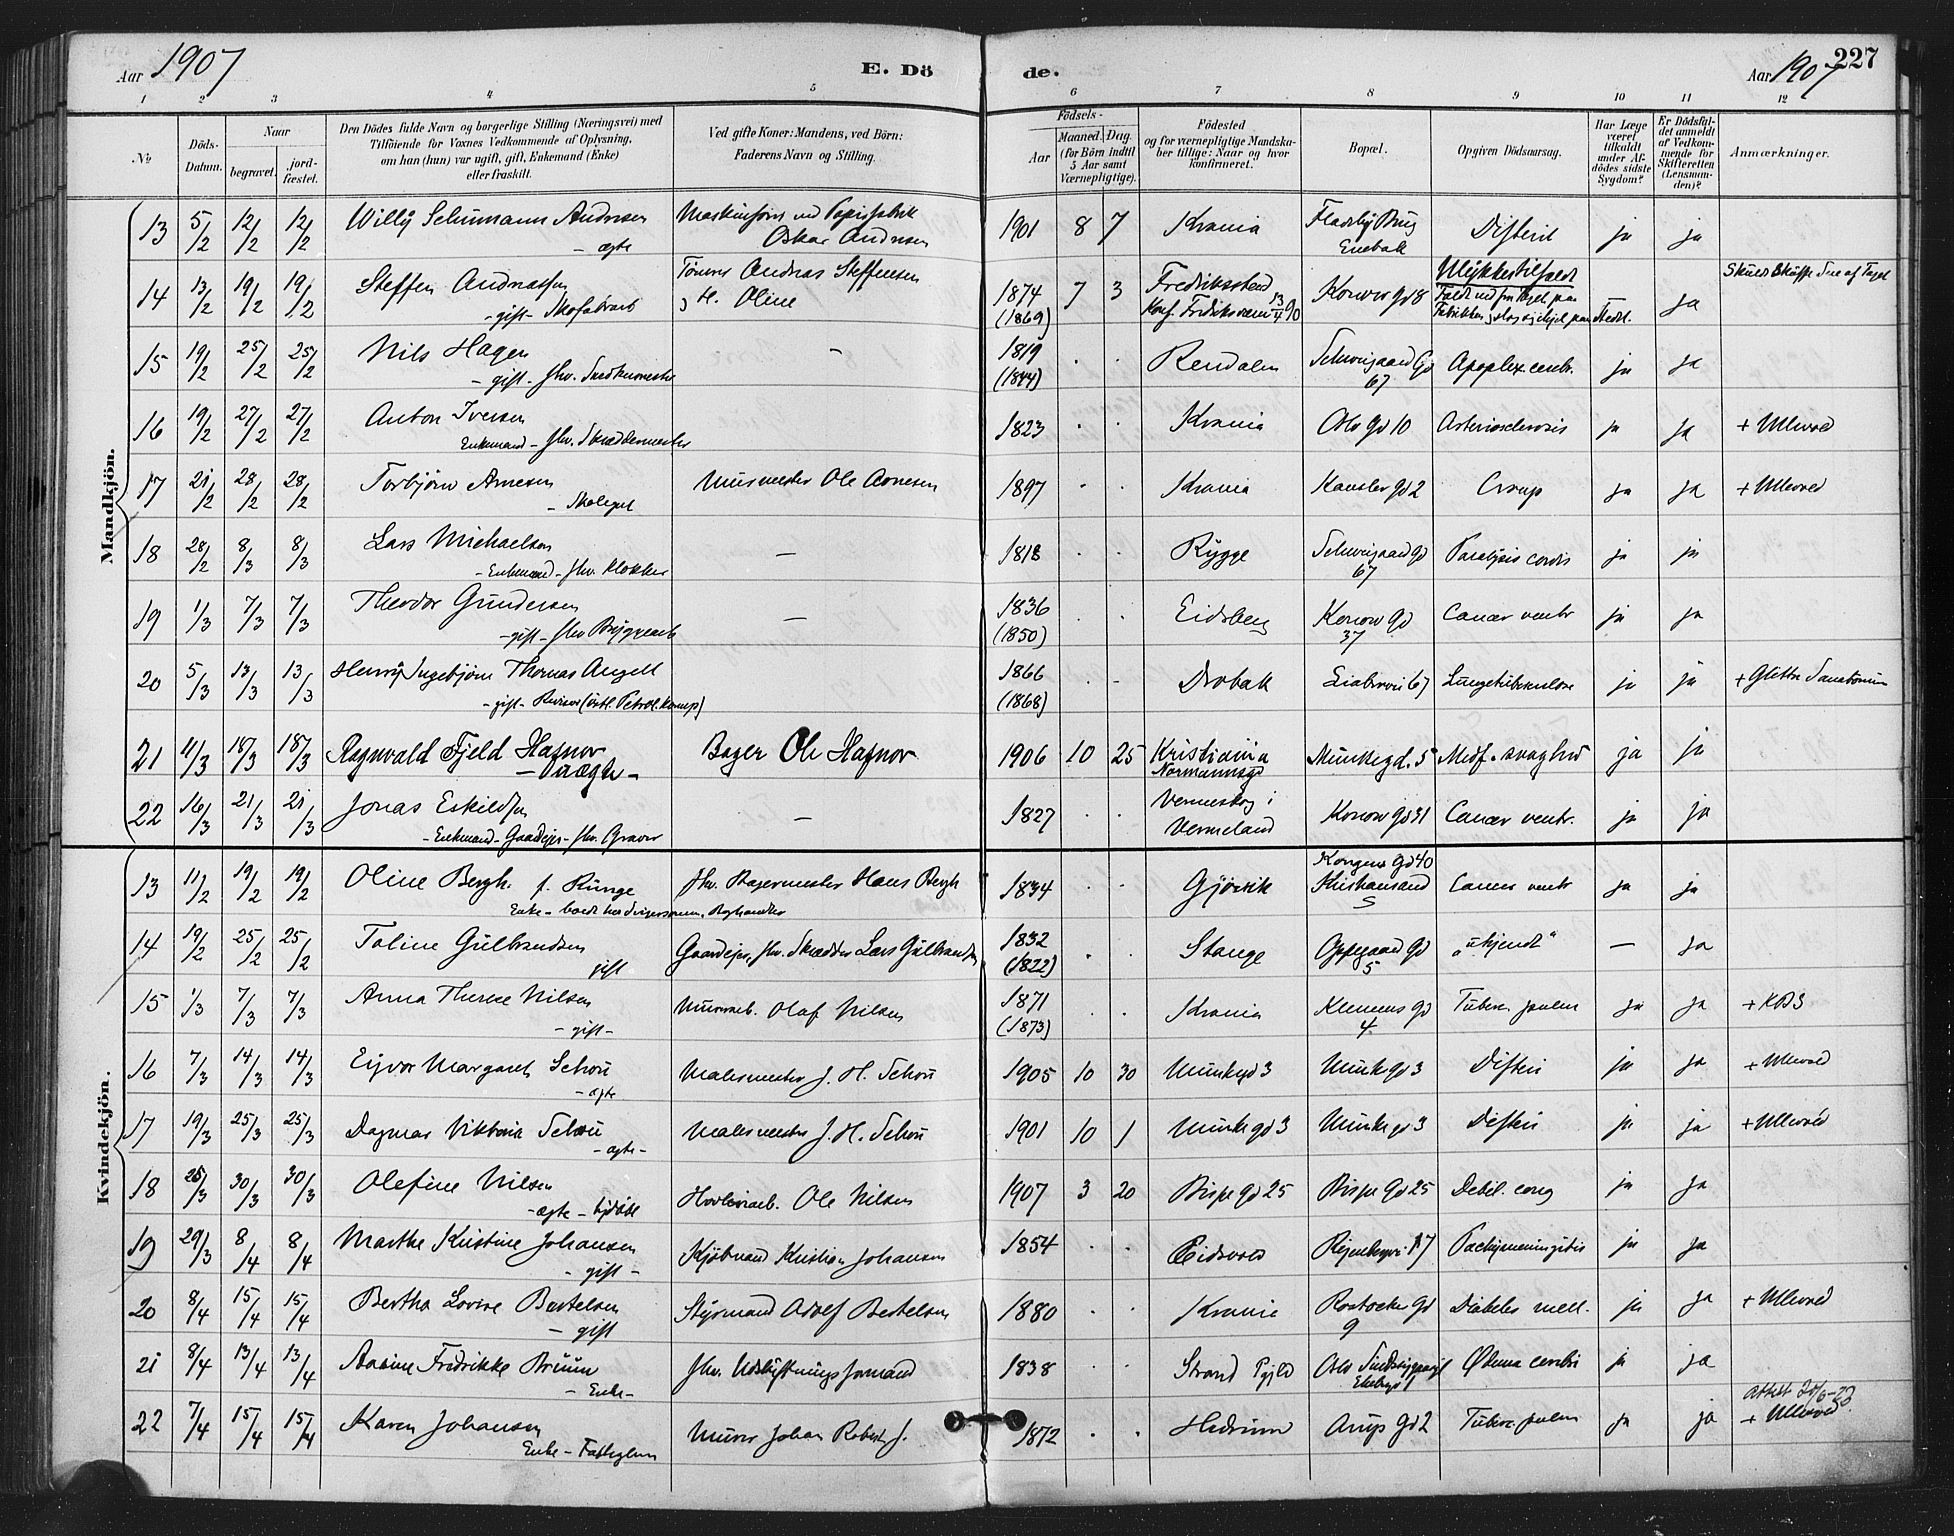 Aar 1907
E. Dö de.
Aar 1907
227
1 2 3 4 5 6 7 8 9 10 11 12
No
Döds-Datum.
Naar
begravet.
jord-fæstet.
Den Dödes fulde Navn og borgerlige Stilling (Næringsvei) med
Tilföiende for Voxnes Vedkommende af Oplysning,
om han (hun) var ugift, gift, Enkemand (Enke)
eller fraskilt.
Ved gifte Koner: Mandens, ved Börn:
Faderens Navn og Stilling.
Födsels-
Aar
Maaned. Dag.
(for Börn indtil
5 Aar samt
Værnepligtige).
Födested
og for værnepligtige Mandska-
ber tillige: Naar og hvor
konfirmeret.
Bopæl.
Opgiven Dödsaarsag.
Har Læge
været
tilkaldt
under Af-
dödes sidste
Sygdom?
Er Dödsfal-
det anmeldt
af Vedkom-
mende for
Skifteretten
(Lensman-
den)?
Anmærkninger.
Mandkjön.
13 5/2 12/2 12/2 Willy Schumann Andresen Maskinform. ved Papirfabrik 1901 8 7 Krania Fladeby Brug Difterit ja ja
- ægte Oskar Andresen Enebak
14 13/2 19/2 19/2 Steffen Andreassen Tömmer Andreas Steffensen 1874 7 3 Fredriksstad Konow Gd 8 Ulykkestilfælde ja
- gift - Skofabrarb Oline (1869) Konf. Fredriksværn 13/4 90 Faldt ned fra Taget paa
Fabrikken, slog sig ihjel paa Stedet.
15 19/2 25/2 25/2 Nils Hagen - 1819 . . Rendalen Schweigaard Gd Apoplex. cerebr. ja ja
- gift - fhv. Snedkermester (1844) 67
16 19/2 27/2 27/2 Anton Iversen 1823 . . Krania Oslo Gd 10 Arteriosclerosis ja ja + Ullevold
Enkemand - fhv. Skræddermester
17 21/2 28/2 28/2 Torbjörn Arnesen Murmester Ole Arnesen 1897 . . Krania Kansler Gd 2 Croup ja ja + Ullevold
- Skolegut
18 28/2 8/3 8/3 Lars Michaelsen - 1818 . . Rygge Schweigaard Gd Paralysis cordis ja ja
- Enkemand - fhv. Klokker 67
19 1/3 7/3 7/3 Theodor Gundersen - 1836 . . Eidsberg Konow Gd Cancer ventr ja ja
- gift - fhv Bryggearb (1850) 37
20 5/3 13/3 13/3 Henry Ingebjörn Thomas Angell 1866 . - Drobak Liabrovei 67 Lungetuberkulose ja ja + Glittre Sanatorium
- gift - Revisor (östl. Petrol. Komp) (1868)
21 11/3 18/3 18/3 Ragnvald Fjeld Hafnor Bager Ole Hafnor 1906 10 25 Kristiania Munkegd. 5 Medf. svaghed ja ja
- uægte - Normannsgd
22 16/3 21/3 21/3 Jonas Eskildsen - 1827 . . Vermskog i Konow Gd 31 Cancer ventr. ja ja
- Enkemand - Gaardejer - fhv. Graver Vermeland
Kvindekjön.
13 11/2 19/2 19/2 Oline Bergh f. Runge fhv. Bagermester Hans Bergh 1834 . . Gjövik Kongens Gd 40 Cancer ventr ja ja
Enke - boede hos Svigersønnen, Boghandler Kristiansand S
14 19/2 25/2 25/2 Taline Gulbrandsen Gaardejer, fhv. Skrædder Lars Gulbrandsen 1832 . . Stange Oppegaard Gd "ukjendt" - ja
gift (1822) 5
15 1/3 7/3 7/3 Anna Therese Nilsen Murerarb. Olaf Nilsen 1871 . . Krania Klemens Gd Tuberc. pulm ja ja + KBS
- gift - (1873) 4
16 7/3 14/3 14/3 Ejvor Margareth Schou Malermester J. H. Schou 1905 10 30 Munkegd 3 Munkegd 3 Difteri ja ja + Ullevold
- ægte
17 19/3 25/3 25/3 Dagmar Viktoria Schou Malermester J. H. Schou 1901 10 1 Munkegd 3 Munkegd 3 Difteri ja ja + Ullevold
- ægte -
18 25/3 30/3 30/3 Olefine Nilsen Hovleriarb. Ole Nilsen 1907 3 20 Bispe Gd 25 Bispe Gd 25 Debil. cong ja ja
- ægte - hjdöbt
19 29/3 8/4 8/4 Marthe Kristine Johansen Kjöbmand Kristian Johansen 1854 . . Eidsvold Ryenbergvei 17 Pachymeningitis ja ja
- gift -
20 8/4 15/4 15/4 Bertha Lovise Bertelsen Styrmand Adolf Bertelsen 1880 . . Krania Rostocker Gd Diabetes mell. ja ja + Ullevold
- gift 9
21 8/4 13/4 13/4 Aasine Fredrikke Bruun fhv. Udskiftningsformand 1838 Strand Pgjld Oslo Sindssygeasyl Ödema cerebri ja ja
- Enke - Ekebergd 1
22 7/4 15/4 15/4 Karen Johansen Murer Johan Robert J. 1872 . . Hedrum Arups Gd 2 Tuberc. pulm ja ja + Ullevold
Enke - Fattiglem